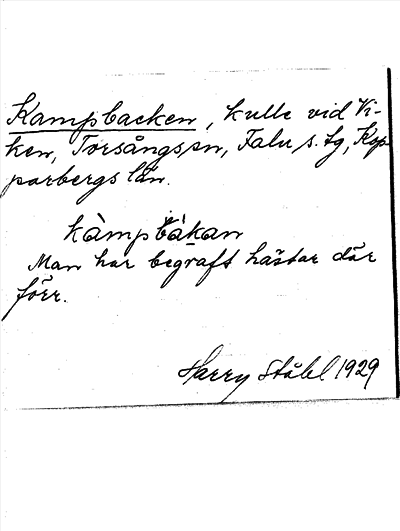 Kampbacken, kulle vid Vi-
ken, Torsångs sn, Falu s. tg, Kop-
parbergs län.
kàmpbàkan
Man har begraft hästar där
förr.
Harry Ståhl 1929